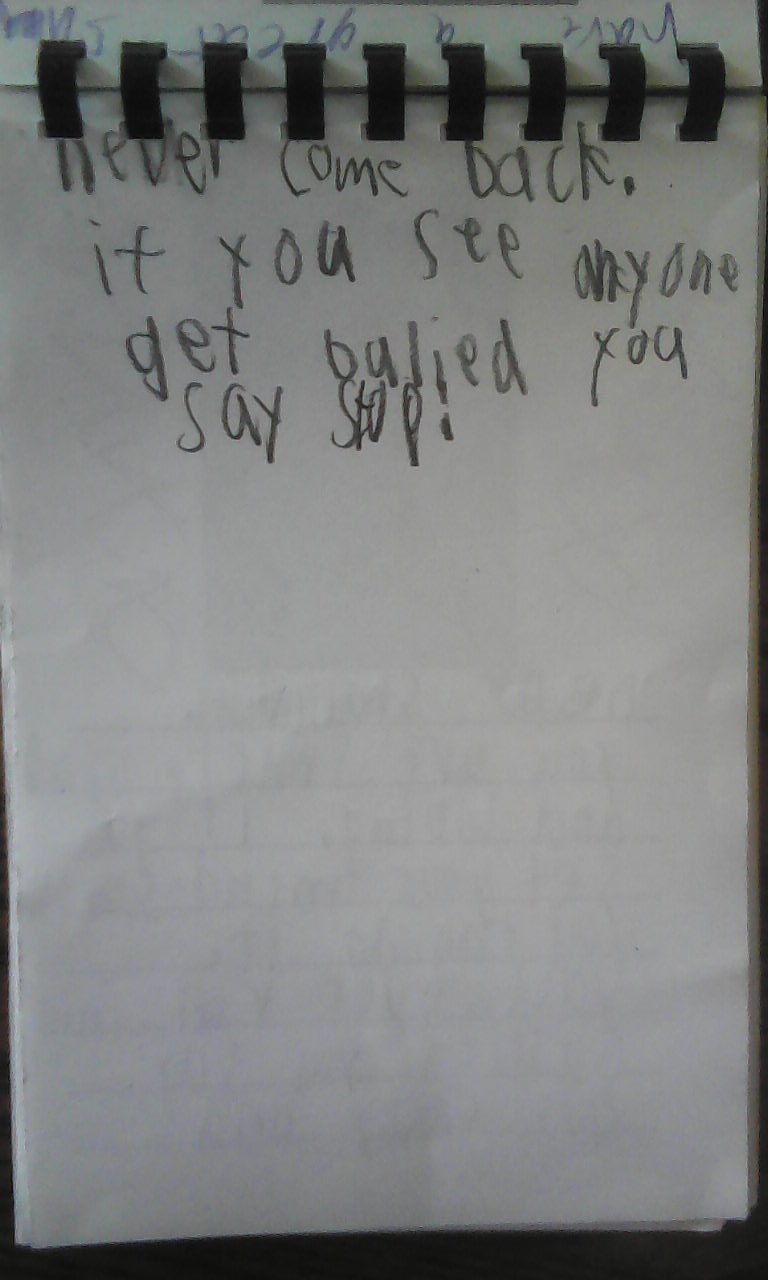 never come back.
if you see anyone
get bulied you
say stop!